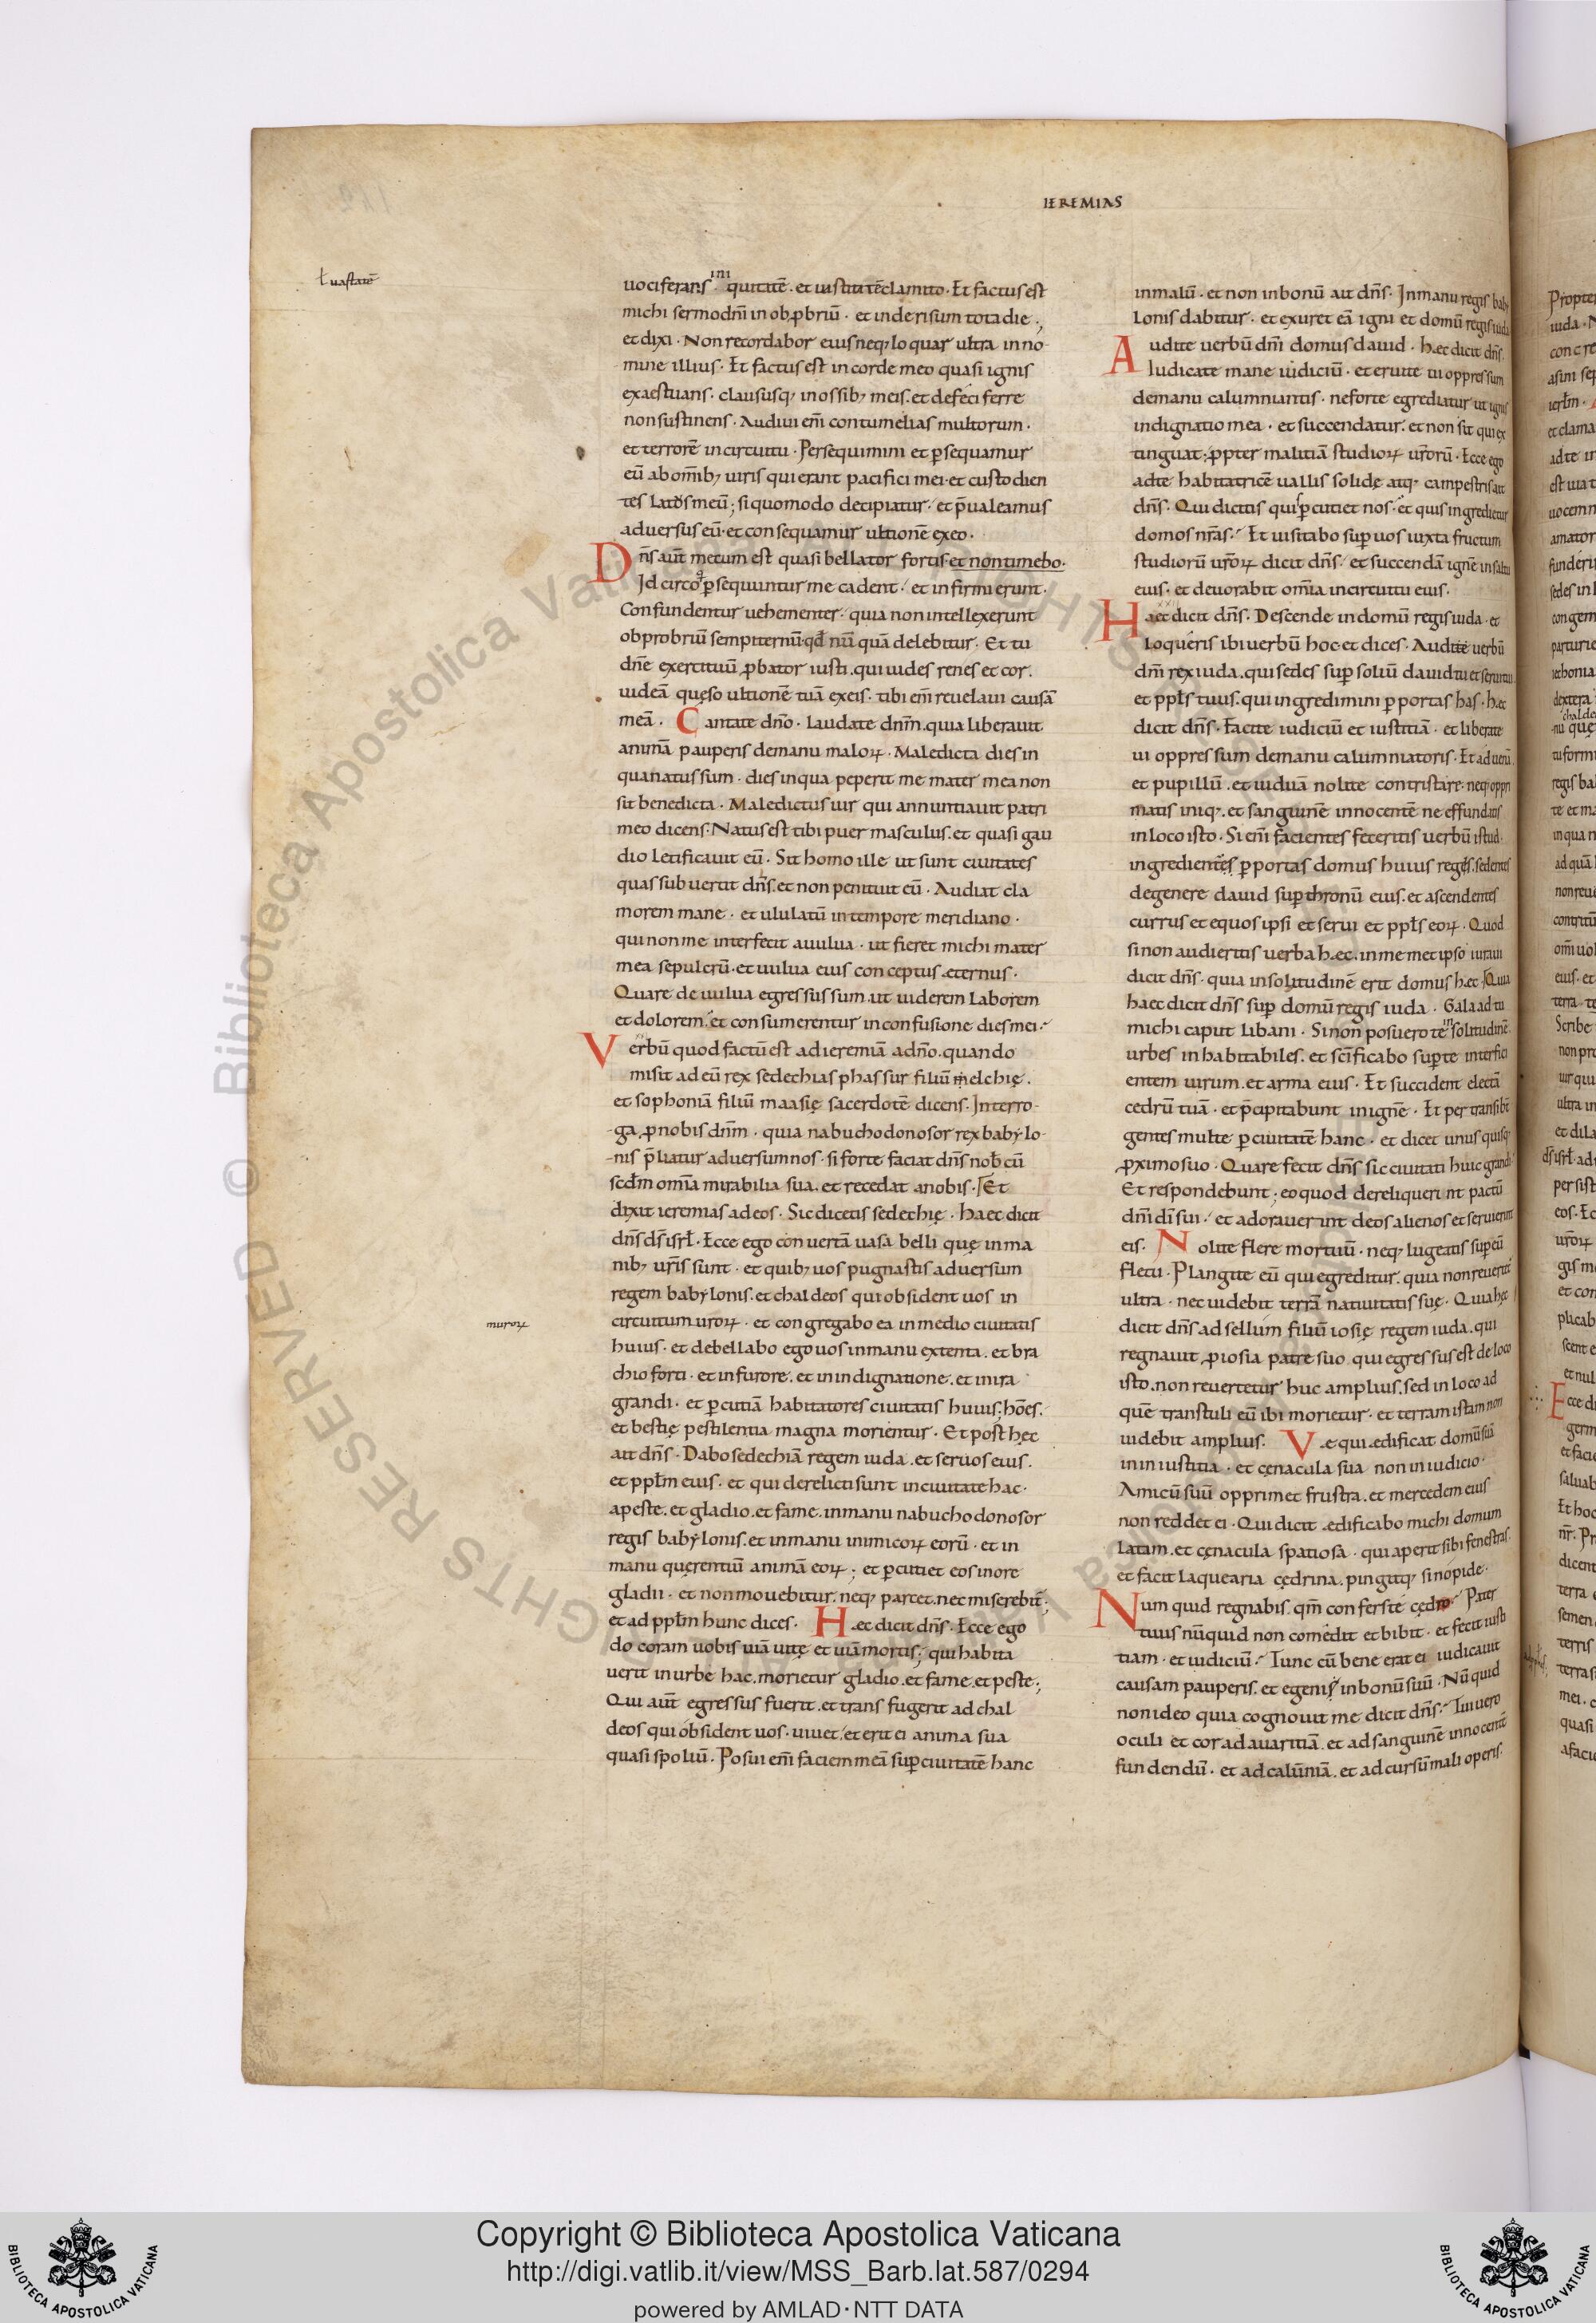 IEREMIAS
ł uastatē
uociferans iniquitatē. et iustitiā clamito. Et factus est
michi sermo dn̄i in obprobriū. et in derisum tota die;
et dixi. Non recordabor eius neq; loquar ultra in no
mine illius. Et factus est in corde meo quasi ignis
exaestuans. claususq; in ossib; meis. et defeci ferre
non sustinens. Audiui em̄ contumelias multorum.
et terrorē in circuitu. Persequimini et p̱sequamur
eū ab om̄ib; uiris qui erant pacifici mei. et custodien
tes latus meū; si quomodo decipiatur. et p̄ualeamus
aduersus eū. et consequamur ultionē ex eo.
Dn̄s aūt mecum est quasi bellator fortis. et non timebo.
Idcirco q p̱sequuntur me cadent. et infirmi erunt.
Confundentur uehementer. quia non intellexerunt
obprobriū sempiternū. qđ nūquā delebitur. Et tu
dn̄e exercituū p̱bator iusti. qui uides renes et cor.
uideā quęso ultionē tuā ex eis. tibi em̄ reuelaui causā
meā. Cantate dn̄o. laudate dn̄m. quia liberauit
animā pauperis de manu maloꝝ. Maledicta dies in
qua natus sum. dies in qua peperit me mater mea non
sit benedicta. Maledictus uir qui annuntiauit patri
meo dicens. Natus est tibi puer masculus. et quasi gau
dio letificauit eū. Sit homo ille ut sunt ciuitates
quas subuertit dn̄s. et non penituit eū. Audiat cla
morem mane. et ululatū in tempore meridiano.
qui non me interfecit a uulua. ut fieret michi mater
mea sepulcrū. et uulua eius conceptus æternus.
Quare de uulua egressus sum. ut uiderem laborem
et dolorem. et consumerentur in confusione dies mei.
Verbū quod factū est ad ieremiā a dn̄o. quando
misit ad eū rex sedechias phassur filiū melchię.
et sophoniā filiū maasię sacerdotē dicens. Interro
ga p̱ nobis dn̄m. quia nabuchodonosor rex babylo
nis p̄liatur aduersum nos. si forte faciat dn̄s nob̄cū
scđm omīa mirabilia sua. et recedat a nobis. Et
dixit ieremias ad eos. Sic dicetis sedechię. Haec dicit
dn̄s d̄s isrł. Ecce ego conuertā uasa belli quę in ma
nib; ur̄is sunt. et quib; uos pugnastis aduersum
regem babylonis. et chaldeos qui obsident uos in
muroꝝ
circuitum uroꝝ. et congregabo ea in medio ciuitatis
huius. et debellabo ego uos in manu extenta. et bra
chio forti. et in furore. et in indignatione. et in ira
grandi. et p̱cutiā habitatores ciuitatis huius. hōes.
et bestię pestilentia magna morientur. Et post hęc
ait dn̄s. Dabo sedechiā regem iuda. et seruos eius.
et ppłm eius. et qui derelicti sunt in ciuitate hac.
a peste. et gladio. et fame. in manu nabuchodonosor
regis babylonis. et in manu inimicoꝝ eorū. et in
manu querentiū animā eoꝝ; et p̱cutiet eos in ore
gladii. et non mouebitur. neq; parcet. nec miserebit̄;
et ad ppłm hunc dices. Hæc dicit dn̄s. Ecce ego
do coram uobis uiā uitę et uiā mortis; qui habita
uerit in urbe hac. morietur gladio. et fame. et peste;
Qui aūt egressus fuerit. et transfugerit ad chal
deos qui obsident uos. uiuet. et erit ei anima sua
quasi spoliū. Posui em̄ faciem meā sup̱ ciuitatē hanc
in malū. et non in bonū ait dn̄s. In manu regis baby
lonis dabitur. et exuret eā igni et domū regis iuda
Audite uerbū dn̄i domus dauid. hæc dicit dn̄s.
Iudicate mane iudiciū. et eruite ui oppressum
de manu calumniantis. ne forte egrediatur ut ignis
indignatio mea. et succendatur. et non sit qui ex
tinguat; p̱pter malitiā studioꝝ ur̄orū. Ecce ego
ad te habitatricē uallis solidę atq; campestris ait
dn̄s. Qui dicitis quis p̱cutiet nos. et quis ingredietur
domos nr̄as. Et uisitabo sup̱ uos iuxta fructum
studiorū ur̄oꝝ dicit dn̄s. et succendā ignē in saltu
eius. et deuorabit omīa in circuitu eius.
Haec dicit dn̄s. Descende in domū regis iuda. et
loqueris ibi uerbū hoc. et dices. Audite uerbū
dn̄i rex iuda. qui sedes sup̱ soliū dauid tu et serui tui
et ppłs tuus. qui ingredimini p̱ portas has. hæc
dicit dn̄s. Facite iudiciū et iustitiā. et liberate
ui oppressum de manu calumniatoris. Et aduenā.
et pupillū. et uiduā nolite contristare. neq; oppri
matis iniq;. et sanguinē innocentē ne effundatis
in loco isto. Si em̄ facientes feceritis uerbū istud.
ingredientes p̱ portas domus huius reges. sedentes
de genere dauid sup̱ thronū eius. et ascendentes
currus et equos ipsi et serui et ppłs eoꝝ. Quod
si non audieritis uerba hæc. in memet ipso iuraui
dicit dn̄s. quia in solitudinē erit domus hæc. Quia
haec dicit dn̄s sup̱ domū regis iuda. Galaad tu
michi caput libani. Si non posuero te in solitudinē.
urbes inhabitabiles. et scīficabo sup̱ te interfici
entem uirum. et arma eius. Et succident electā
cedrū tuā. et p̄cipitabunt in ignē. Et per transibt̄
gentes multe p̱ ciuitatē hanc. et dicet unus quisq;
p̱ximo suo. Quare fecit dn̄s sic ciuitati huic grandi.
Et respondebunt; eo quod dereliquerint pactū
dn̄i dī sui. et adorauerint deos alienos et seruierint
eis. Nolite flere mortuū. neq; lugeatis sup̱ eū
fletu. Plangite eū qui egreditur. quia non reuertit̄
ultra. nec uidebit terrā natiuitatis suę. Quia hęc
dicit dn̄s ad sellum filiū iosię regem iuda. qui
regnauit p̱ iosia patre suo qui egressus est de loco
isto. non reuertetur huc amplius. sed in loco ad
quē transtuli eū ibi morietur. et terram istam non
uidebit amplius. Væ qui ædificat domū suā
in iniustitia. et cęnacula sua non in iudicio.
Amicū suū opprimet frustra. et mercedem eius
non reddet ei. Qui dicit ædificabo michi domum
latam. et cęnacula spatiosa. qui aperit sibi fenestras.
et facit laquearia cędrina. pingitq; sinopide.
Num quid regnabis. qm̄ confers te cędro. Pater
tuus nūquid non comedit et bibit. et fecit iusti
tiam. et iudiciū. Tunc cū bene erat ei iudicauit
causam pauperis. et egeni in bonū suū. Nū quid
non ideo quia cognouit me dicit dn̄s. Tui uero
oculi et cor ad auaritiā. et ad sanguinē innocentē
fundendū. et ad calūniā. et ad cursū mali operis.
Copyright © Biblioteca Apostolica Vaticana
http://digi.vatlib.it/view/MSS_Barb.lat.587/0294
powered by AMLAD·NTT DATA